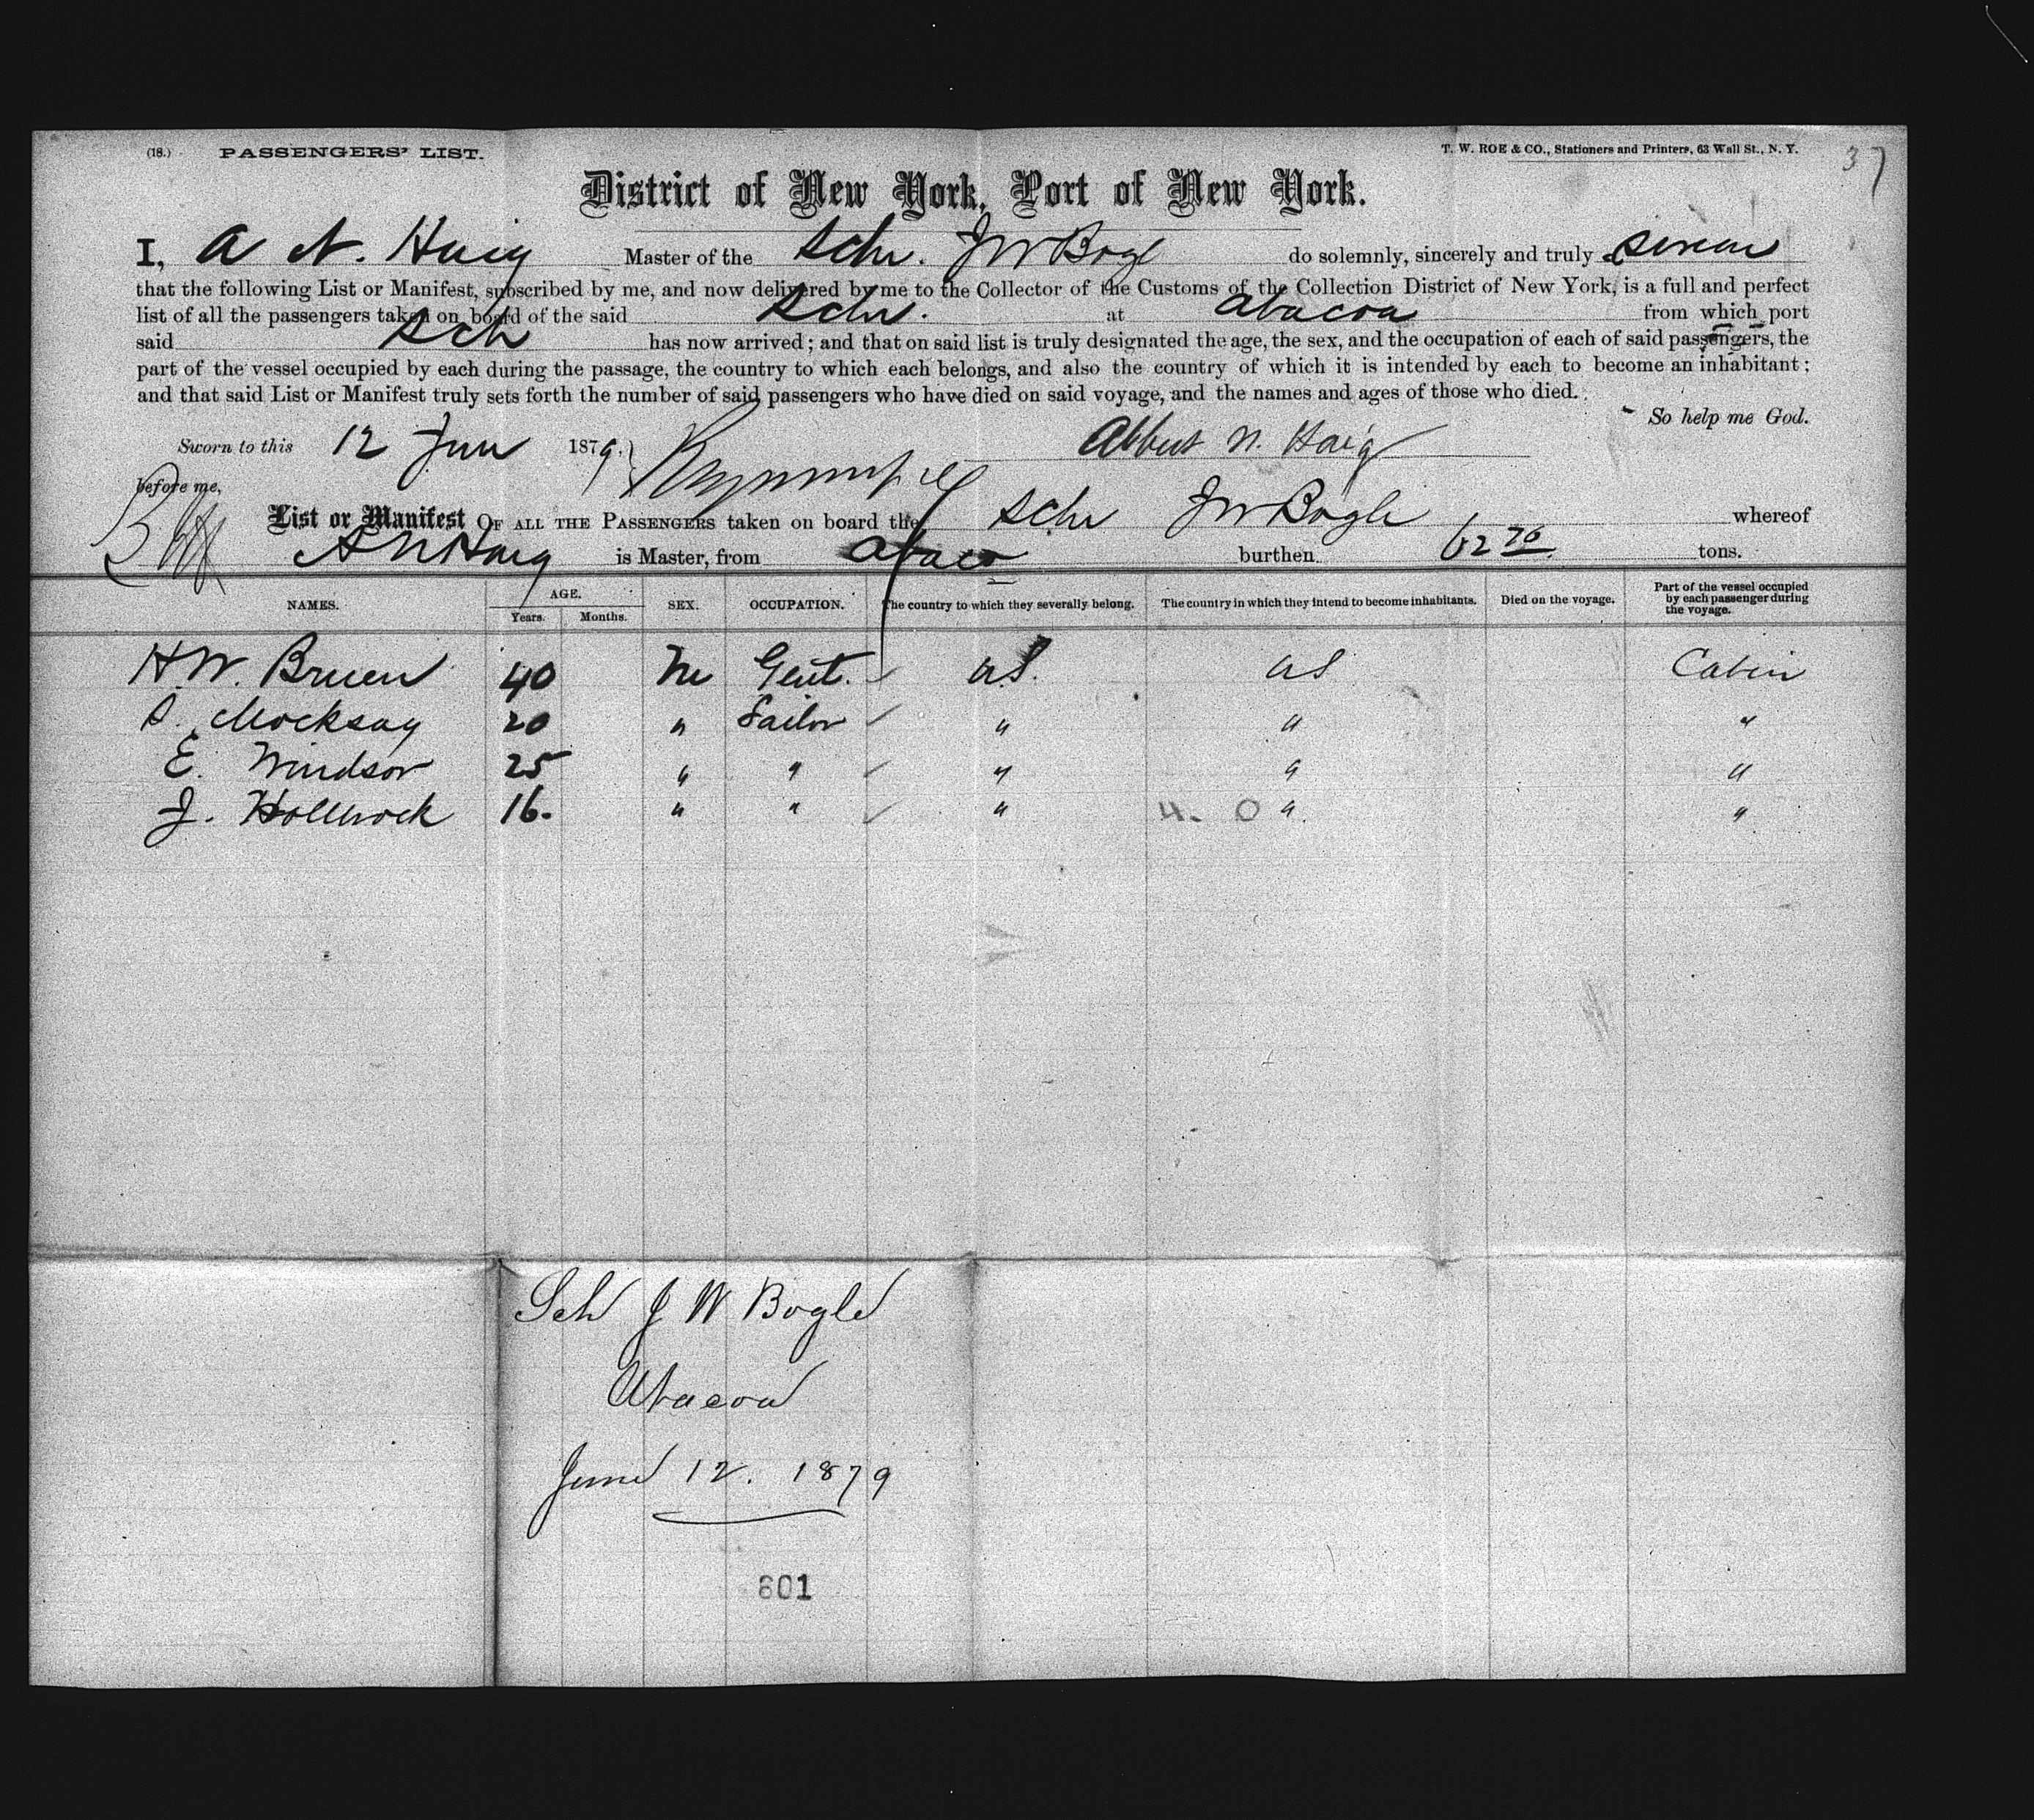 (18.) PASSENGERS' LIST. T. W. ROE & CO., Stationers and Printers, 63 Wall St., N. Y. 37
District of New York, Port of New York.
I, A N. Haig Master of the Schr. JW Bogl do solemnly, sincerely and truly swear
that the following List or Manifest, subscribed by me, and now delivered by me to the Collector of the Customs of the Collection District of New York, is a full and perfect
list of all the passengers taken on board of the said Schr. at abacoa from which port
said Sch has now arrived; and that on said list is truly designated the age, the sex, and the occupation of each of said passengers, the
part of the vessel occupied by each during the passage, the country to which each belongs, and also the country of which it is intended by each to become an inhabitant;
and that said List or Manifest truly sets forth the number of said passengers who have died on said voyage, and the names and ages of those who died.
So help me God.
Sworn to this 12 June 1879. Albert N. Haig
before me,
List or Manifest OF ALL THE PASSENGERS taken on board the Schr JW Bogle whereof
A N Haig is Master, from abaco burthen 62 70 tons.
NAMES. AGE. Years. Months. SEX. OCCUPATION. The country to which they severally belong. The country in which they intend to become inhabitants. Died on the voyage. Part of the vessel occupied by each passenger during the voyage.
H.W. Bruen 40 M Gent. US. US Cabin
S. Mocksay 20 " Sailor " " "
E. Windsor 25 " " " " "
J. Hollbrock 16. " " " 4. 0 " "
Sch J W Bogle
Abacoa
June 12. 1879
601